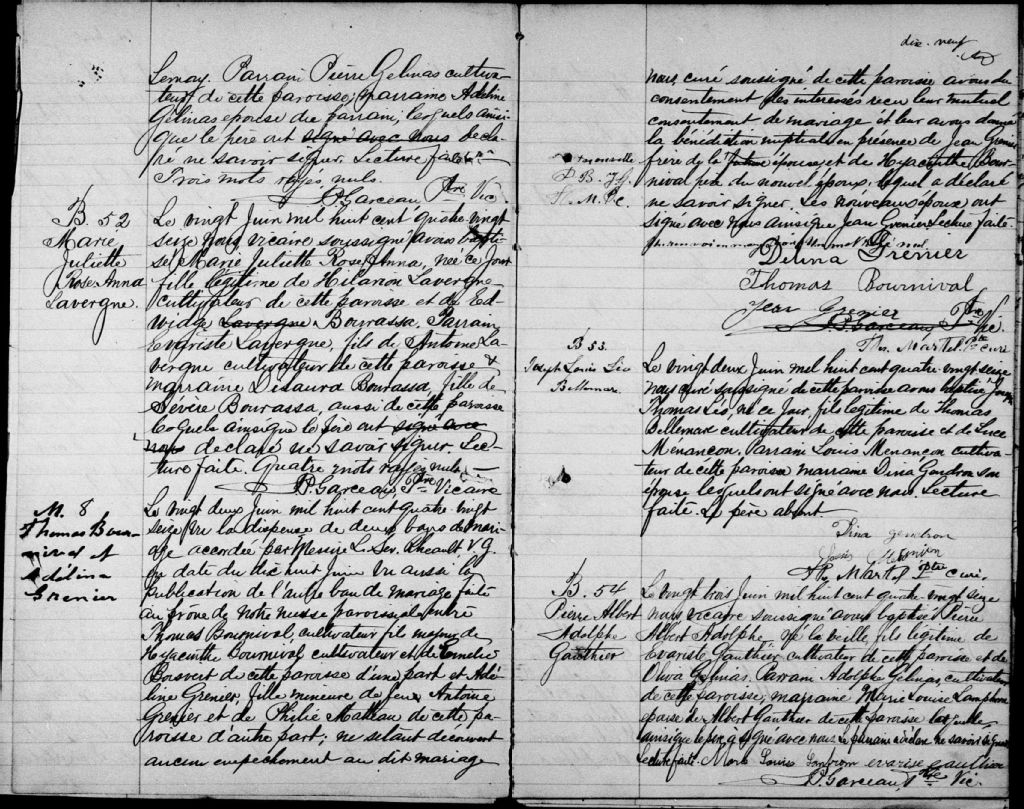 Lemay. Parrain Pierre Gelinas cultiva-
teur de cette paroisse, marraine Adeline
Gelinas epouse du parrain, lesquels ainsi
que le père ont signé avec nous decla-
ré ne savoir signer. Lecture faite.
Trois mots rayés nuls.
P. Garceau Ptre Vic.
B. 52
Marie
Juliette
Rose Anna
Lavergne.
Le vingt Juin mil huit cent quatre-vingt
seize nous vicaire soussigné avons bapti-
sé Marie Juliette Rose Anna, née ce jour
fille légitime de Hilarion Lavergne
cultivateur de cette paroisse et de Ed-
widge Lavergne Bourassa. Parrain
Evariste Lavergne, fils de Antoine La-
vergne cultivateur de cette paroisse &
marraine Désaura Bourassa, fille de
Sévère Bourassa, aussi de cette paroisse
lesquels ainsi que le père ont signé avec
nous declaré ne savoir signer. Lec-
ture faite. Quatre mots rayés nuls.
P. Garceau Ptre Vicaire
M. 8
Thomas Bour-
nival et
Adélina
Grenier
Le vingt deux Juin mil huit cent quatre vingt
seize Vu la dispense de deux bans de maria-
ge accordée par Messire L. Sev. Rheault, V.G.
en date du dix huit Juin vu aussi la
publication de l'autre ban de mariage faite
au prône de notre messe paroissiale entre
Thomas Bournival, cultivateur fils majeur de
Hyacinthe Bournival cultivateur et de Emelie
Boisvert de cette paroisse d'une part et Adé-
line Grenier, fille mineure de feux Antoine
Grenier et de Philie Matteau de cette pa-
roisse d'autre part; ne s'étant découvert
aucun empêchement au dit mariage
dix-neuf
nous, curé soussigné de cette paroisse avons du
consentement des interessés reçu leur mutuel
consentement de mariage et leur avons donné
la bénédiction nuptiale en présence de Jean Grenier
frère de la future épouse, et de Hyacinthe Bour-
nival père du nouvel époux, lequel a déclaré
ne savoir signer. Les nouveaux époux ont
signé avec nous ainsi que Jean Grenier Lecture faite.
Delina Grenier
Thomas Bournival
Jean Grenier
P. Garceau Ptre Vic.
Ths. Martel Ptre curé
B 53.
Joseph Louis Léo
Bellemare
Le vingt deux Juin mil huit cent quatre vingt seize
nous curé soussigné de cette paroisse avons baptisé Joseph
Thomas Léo, né ce jour, fils legitime de Thomas
Bellemare cultivateur de cette paroisse et de Luce
Menançon. Parrain Louis Menançon cultiva-
teur de cette paroisse marraine Dina Gendron son
épouse lesquels ont signé avec nous Lecture
faite. Le père absent
Dina gendron
Ths. Martel Ptre curé.
B. 54
Pierre Albert
Adolphe
Gauthier
Le vingt trois Juin mil huit cent quatre vingt seize
nous vicaire soussigné avons baptisé Pierre
Albert Adolphe, né la veille, fils legitime de
Evariste Gauthier cultivateur de cette paroisse et de
Oliva Gelinas. Parrain Adolphe Gelinas, cultivateur
de cette paroisse, marraine Marie Louise Lamphron
épouse de Albert Gauthier de cette paroisse laquelle
ainsi que le père a signé avec nous, le parrain a déclaré ne savoir signer
Lecture faite. Marie Louise Lanfrom evarise Gauthier
P. Garceau, Ptre Vic.